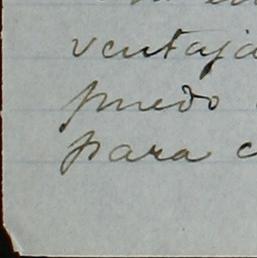 ventaja
puedo
para c